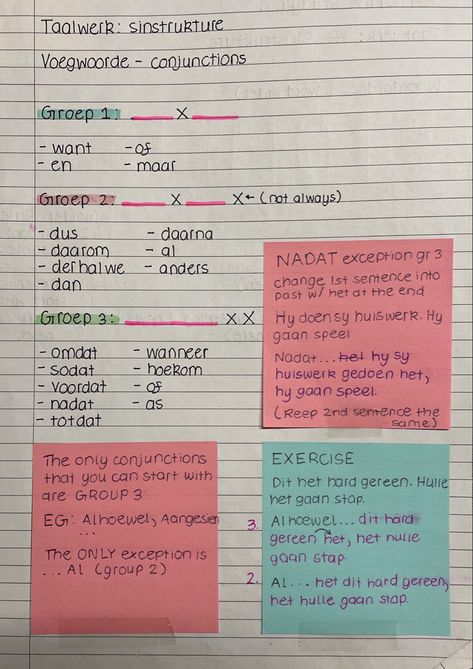 Taalwerk: sinstrukture
Voegwoorde - conjunctions
Groep 1: ___ X ___
- want - of
- en - maar
Groep 2: ___ X ___ X ← (not always)
- dus - daarna
- daarom - al
- derhalwe - anders
- dan
Groep 3: ___ X X
- omdat - wanneer
- sodat - hoekom
- voordat - of
- nadat - as
- totdat
NADAT exception gr 3
change 1st sentence into
past w/ het at the end
Hy doen sy huiswerk. Hy
gaan speel
Nadat... het hy sy
huiswerk gedoen het,
hy gaan speel.
(Reep 2nd sentence the
same)
The only conjunctions
that you can start with
are GROUP 3
EG: Alhoewel, Aangesien
...
The ONLY exception is
... Al (group 2)
EXERCISE
Dit het hard gereen. Hulle
het gaan stap.
3. Alhoewel... dit hard
gereen het, het hulle
gaan stap.
2. Al... het dit hard gereen,
het hulle gaan stap.